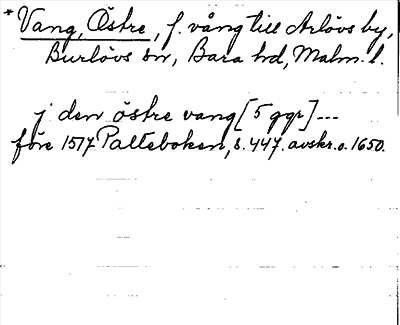 * Vang, Östre, f. vång till Arlövs by,
Burlövs sn, Bara hd, Malm. l.
j den östre vang [5 ggr] ---
före 1517. Palteboken, s. 447. avskr. o. 1650.